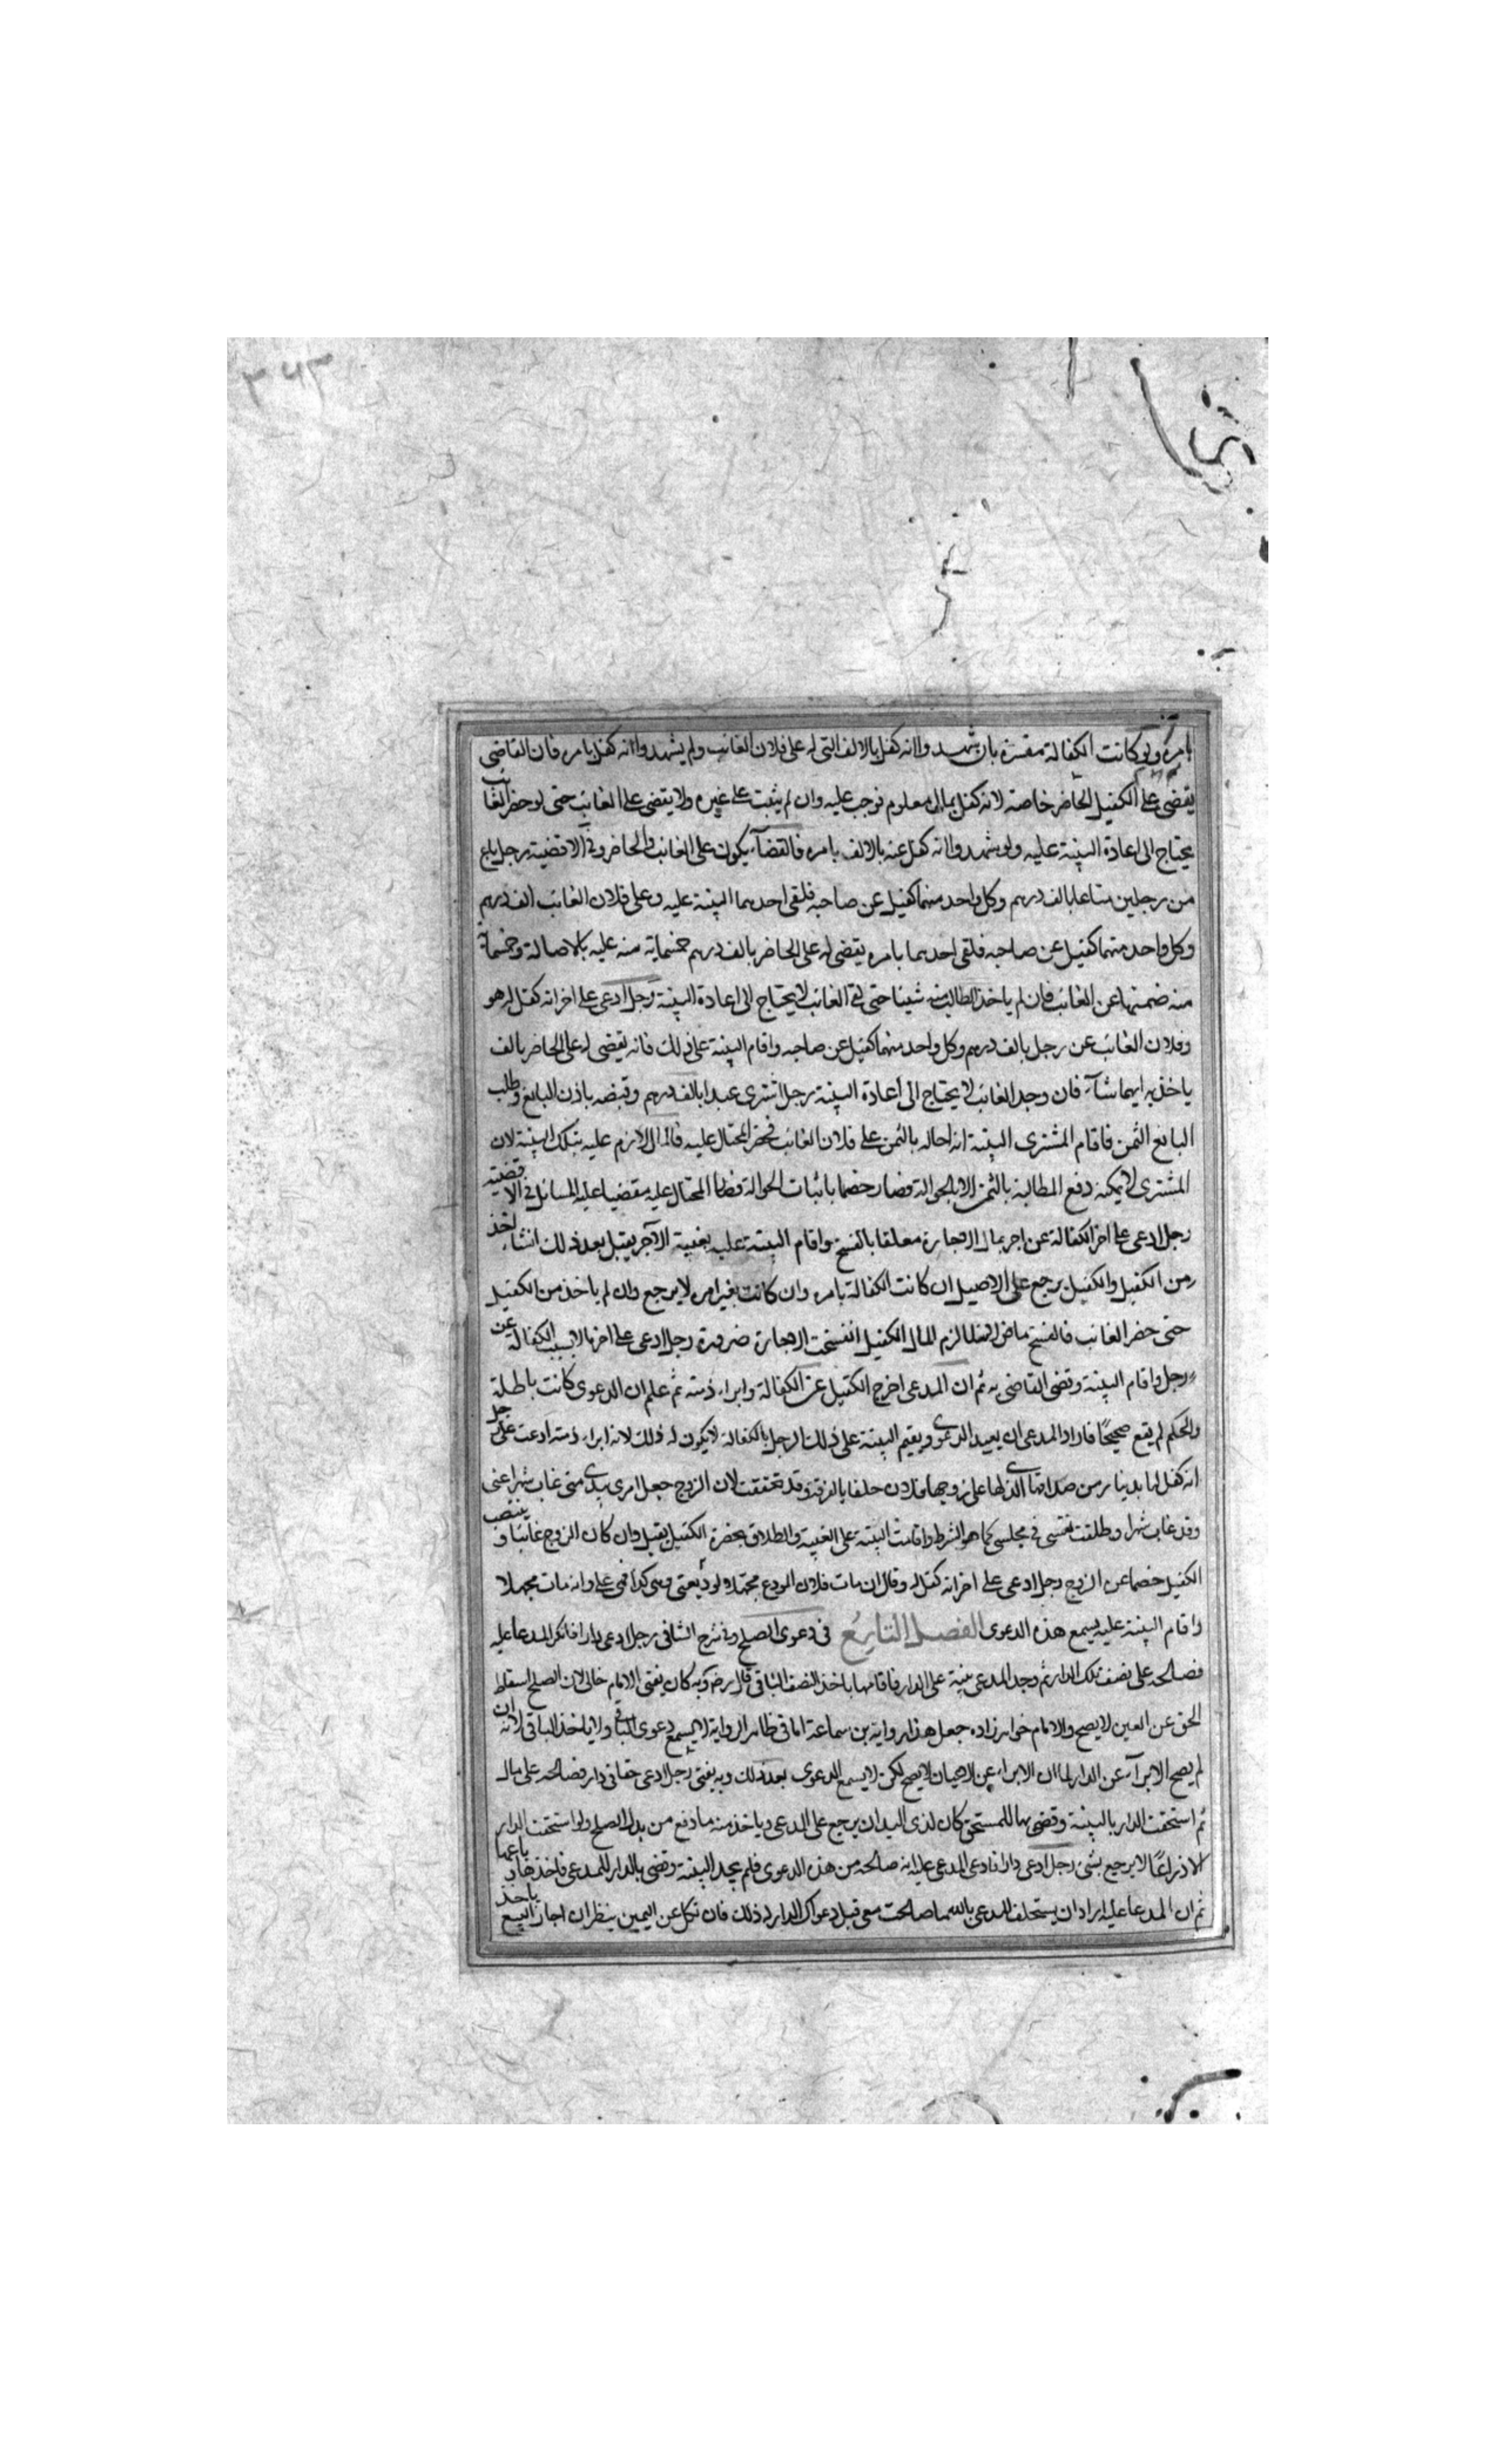 ٣٤٣
بامره ولو كانت الكفالة مفسرة بان شهدوا انه كفل بالالف التى له على فلان الغائب ولم يشهدوا انه كفل بامره فان القاضى
يقضى على الكفيل الحاضر خاصة لانه كفل بمال معلوم فوجب عليه وان لم يثبت على غيره ولا يقضى على الغائب حتى لو حضر الغائب
يحتاج الى اعادة البينة عليه ولو شهدوا انه كفل عنه بالالف بامره فالقضآء يكون على الغائب والحاضر وفى الاقضية رجل باع
من رجلين متاعا بالف درهم وكل واحد منهما كفيل عن صاحبه فلقى احدهما البينة عليه وعلى فلان الغائب الف درهم
وكل واحد منهما كفيل عن صاحبه فلقى احدهما بامره يقضى له على الحاضر بالف درهم خمسماية منه عليه بالاصالة وخمسماية
منه ضمنها عن الغائب فان لم ياخذ الطالب منه شيئا حتى لقى الغائب لا يحتاج الى اعادة البينة رجل ادعى على اخر انه كفل له هو
وفلان الغائب عن رجل بالف درهم وكل واحد منهما كفيل عن صاحبه واقام البينة على ذلك فانه يقضى له على الحاضر بالف
ياخذ به ايهما شآء فان وجد الغائب لا يحتاج الى اعادة البينة رجل اشترى عبدا بالف درهم وقبضه باذن البايع وطلب
البايع الثمن فاقام المشترى البينة انه احاله بالثمن على فلان الغائب فحضر المحتال عليه فالمال لازم عليه بتلك البينة لان
المشترى لا يمكنه دفع المطالبة بالثمن الا بالحوالة فصار خصما باثبات الحوالة فصار المحتال عليه مقضيا عليه المسائل فى الاقضية
رجل ادعى على اخر الكفالة عن اجر بمال الاجارة معلقا بالفسخ واقام البينة عليه بغيبة الآجر يقبل بعد ذلك انشاء اخذ
من الكفيل والكفيل يرجع على الاصيل ان كانت الكفالة بامره وان كانت بغير امره لا يرجع وان لم ياخذ من الكفيل
حتى حضر الغائب فالفسخ ماض لانه لما لزم المال الكفيل انفسخت الاجارة ضرورة رجل ادعى على اخر مالا بسبب الكفالة عن
رجل واقام البينة وقضى القاضى به ثم ان المدعى اخرج الكفيل عن الكفالة وابراء ذمته ثم علم ان الدعوى كانت باطلة
والحكم لم يقع صحيحًا فاراد المدعى ان يعيد الدعوى ويقيم البينة على ذلك الرجل بالكفالة لا يكون له ذلك لانه ابراء ذمته ادعت على رجل
انه كفل لها بدينار من صداقها الذى لها على زوجها فلان حلفا بالفرقة وقد تحققت لان الزوج جعل امرى بيدى متى غاب شهرا عنى
وقد غاب شهرا وطلقت نفسى فى مجلسى كما هو الشرط واقامت البينة على الغيبة والطلاق بحضرة الكفيل يقبل وان كان الزوج غائبا وينتصب
الكفيل خصما عن الزوج رجل ادعى على اخر انه كفل له وقال ان مات فلان المودع مجهلا لوديعتى وهى كذا فهى على وانه مات مجهلا
واقام البينة عليه يسمع هذه الدعوى الفصل التاسع فى دعوى الصلح وفى شرح الشافى رجل ادعى دارا فانكر المدعا عليه
فصالحه على نصف تلك الدار ثم وجد المدعى بينة على الدار فاقامها ياخذ النصف الباقى قال رض وبه كان يفتى الامام خالى لان الصلح اسقاط
الحق عن العين لا يصح والامام خواهر زاده جعل هذا رواية بن سماعة اما فى ظاهر الرواية لا يسمع دعوى الباقى ولا ياخذ الباقى لانه ان
لم يصح الابرآء عن الدار لما ان الابراء عن الاعيان لا يصح لكن لا يسمع الدعوى بعد ذلك وبه يفتى رجل ادعى حقا فى دار فصالحه على مال
ثم استحقت الدار بالبينة وقضى بها للمستحق كان لذى اليد ان يرجع على المدعى وياخذ منه ما دفع من بدل الصلح ولو استحقت الدار
الا ذراعًا لا يرجع بشئ رجل ادعى دارا فادعى المدعى عليه انه صالحه من هذه الدعوى فلم يجد البينة وقضى بالدار للمدعى فاخذها وباعها
ثم ان المدعا عليه اراد ان يستحلف المدعى بالله ما صالحت معى قبل دعواك الدار له ذلك فان نكل عن اليمين ينظر ان اجاز البيع ياخذ